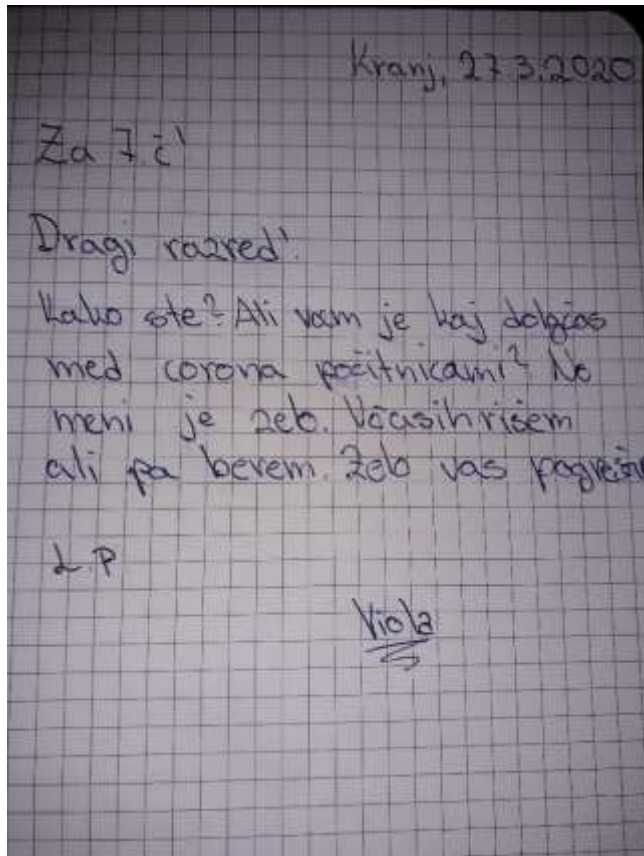 Kranj, 27.3.2020
Za 7.č!
Dragi razred!
Kako ste? Ali vam je kaj dolgčas
med corona počitnicami? No
meni je zelo. Včasih rišem
ali pa berem. Zelo vas pogreša
L.P
Viola